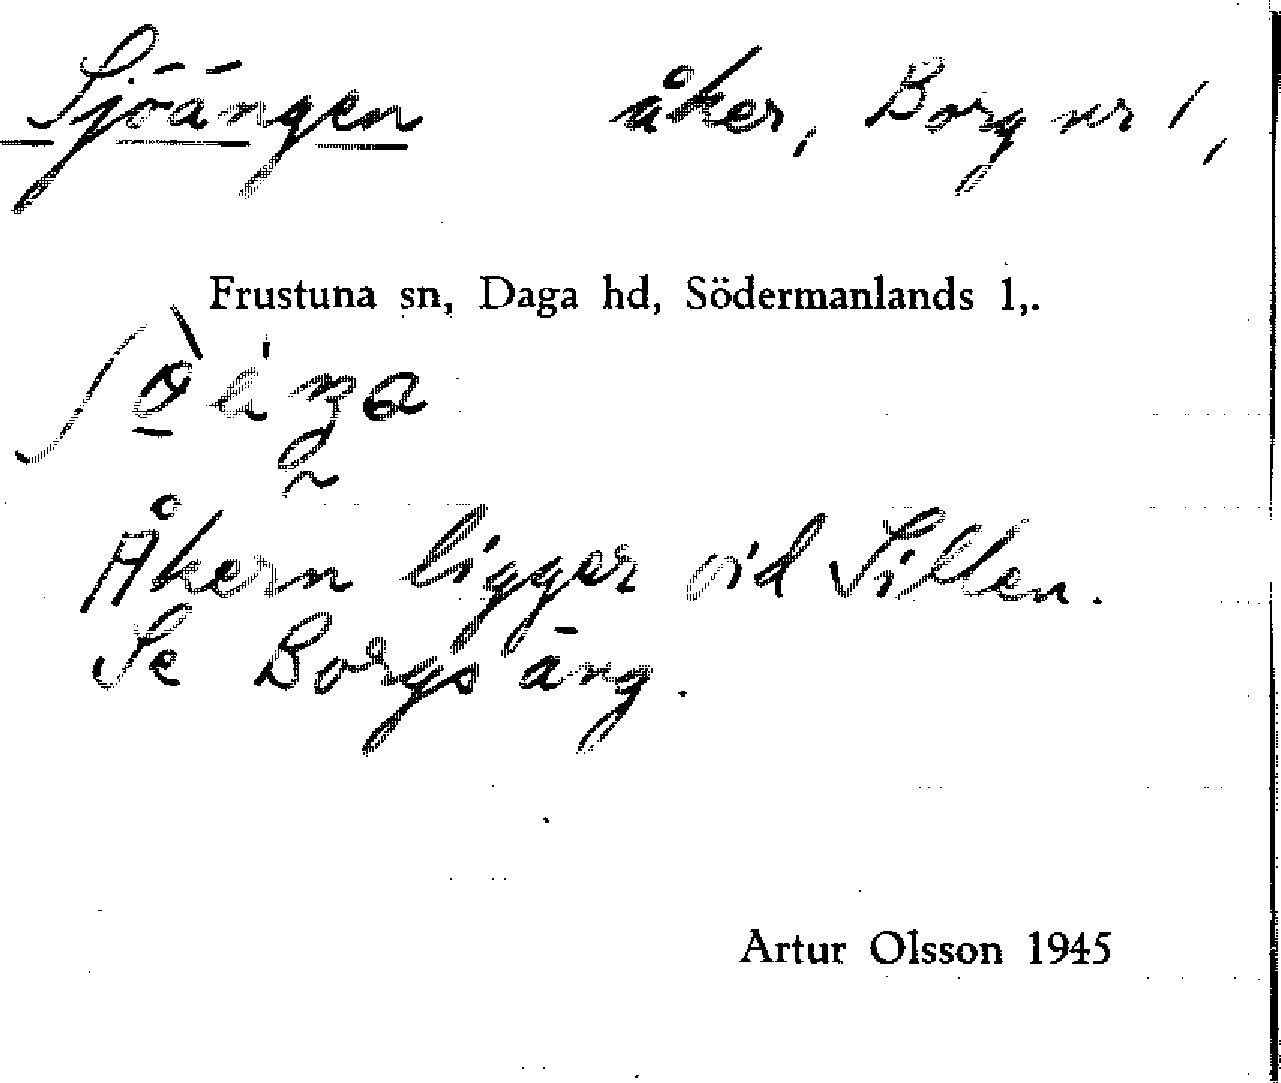 Sjöängen åker, Borg nr 1,
Frustuna sn, Daga hd, Södermanlands l,.
Åkern ligger vid Sillen.
Se Borgs äng.
Artur Olsson 1945